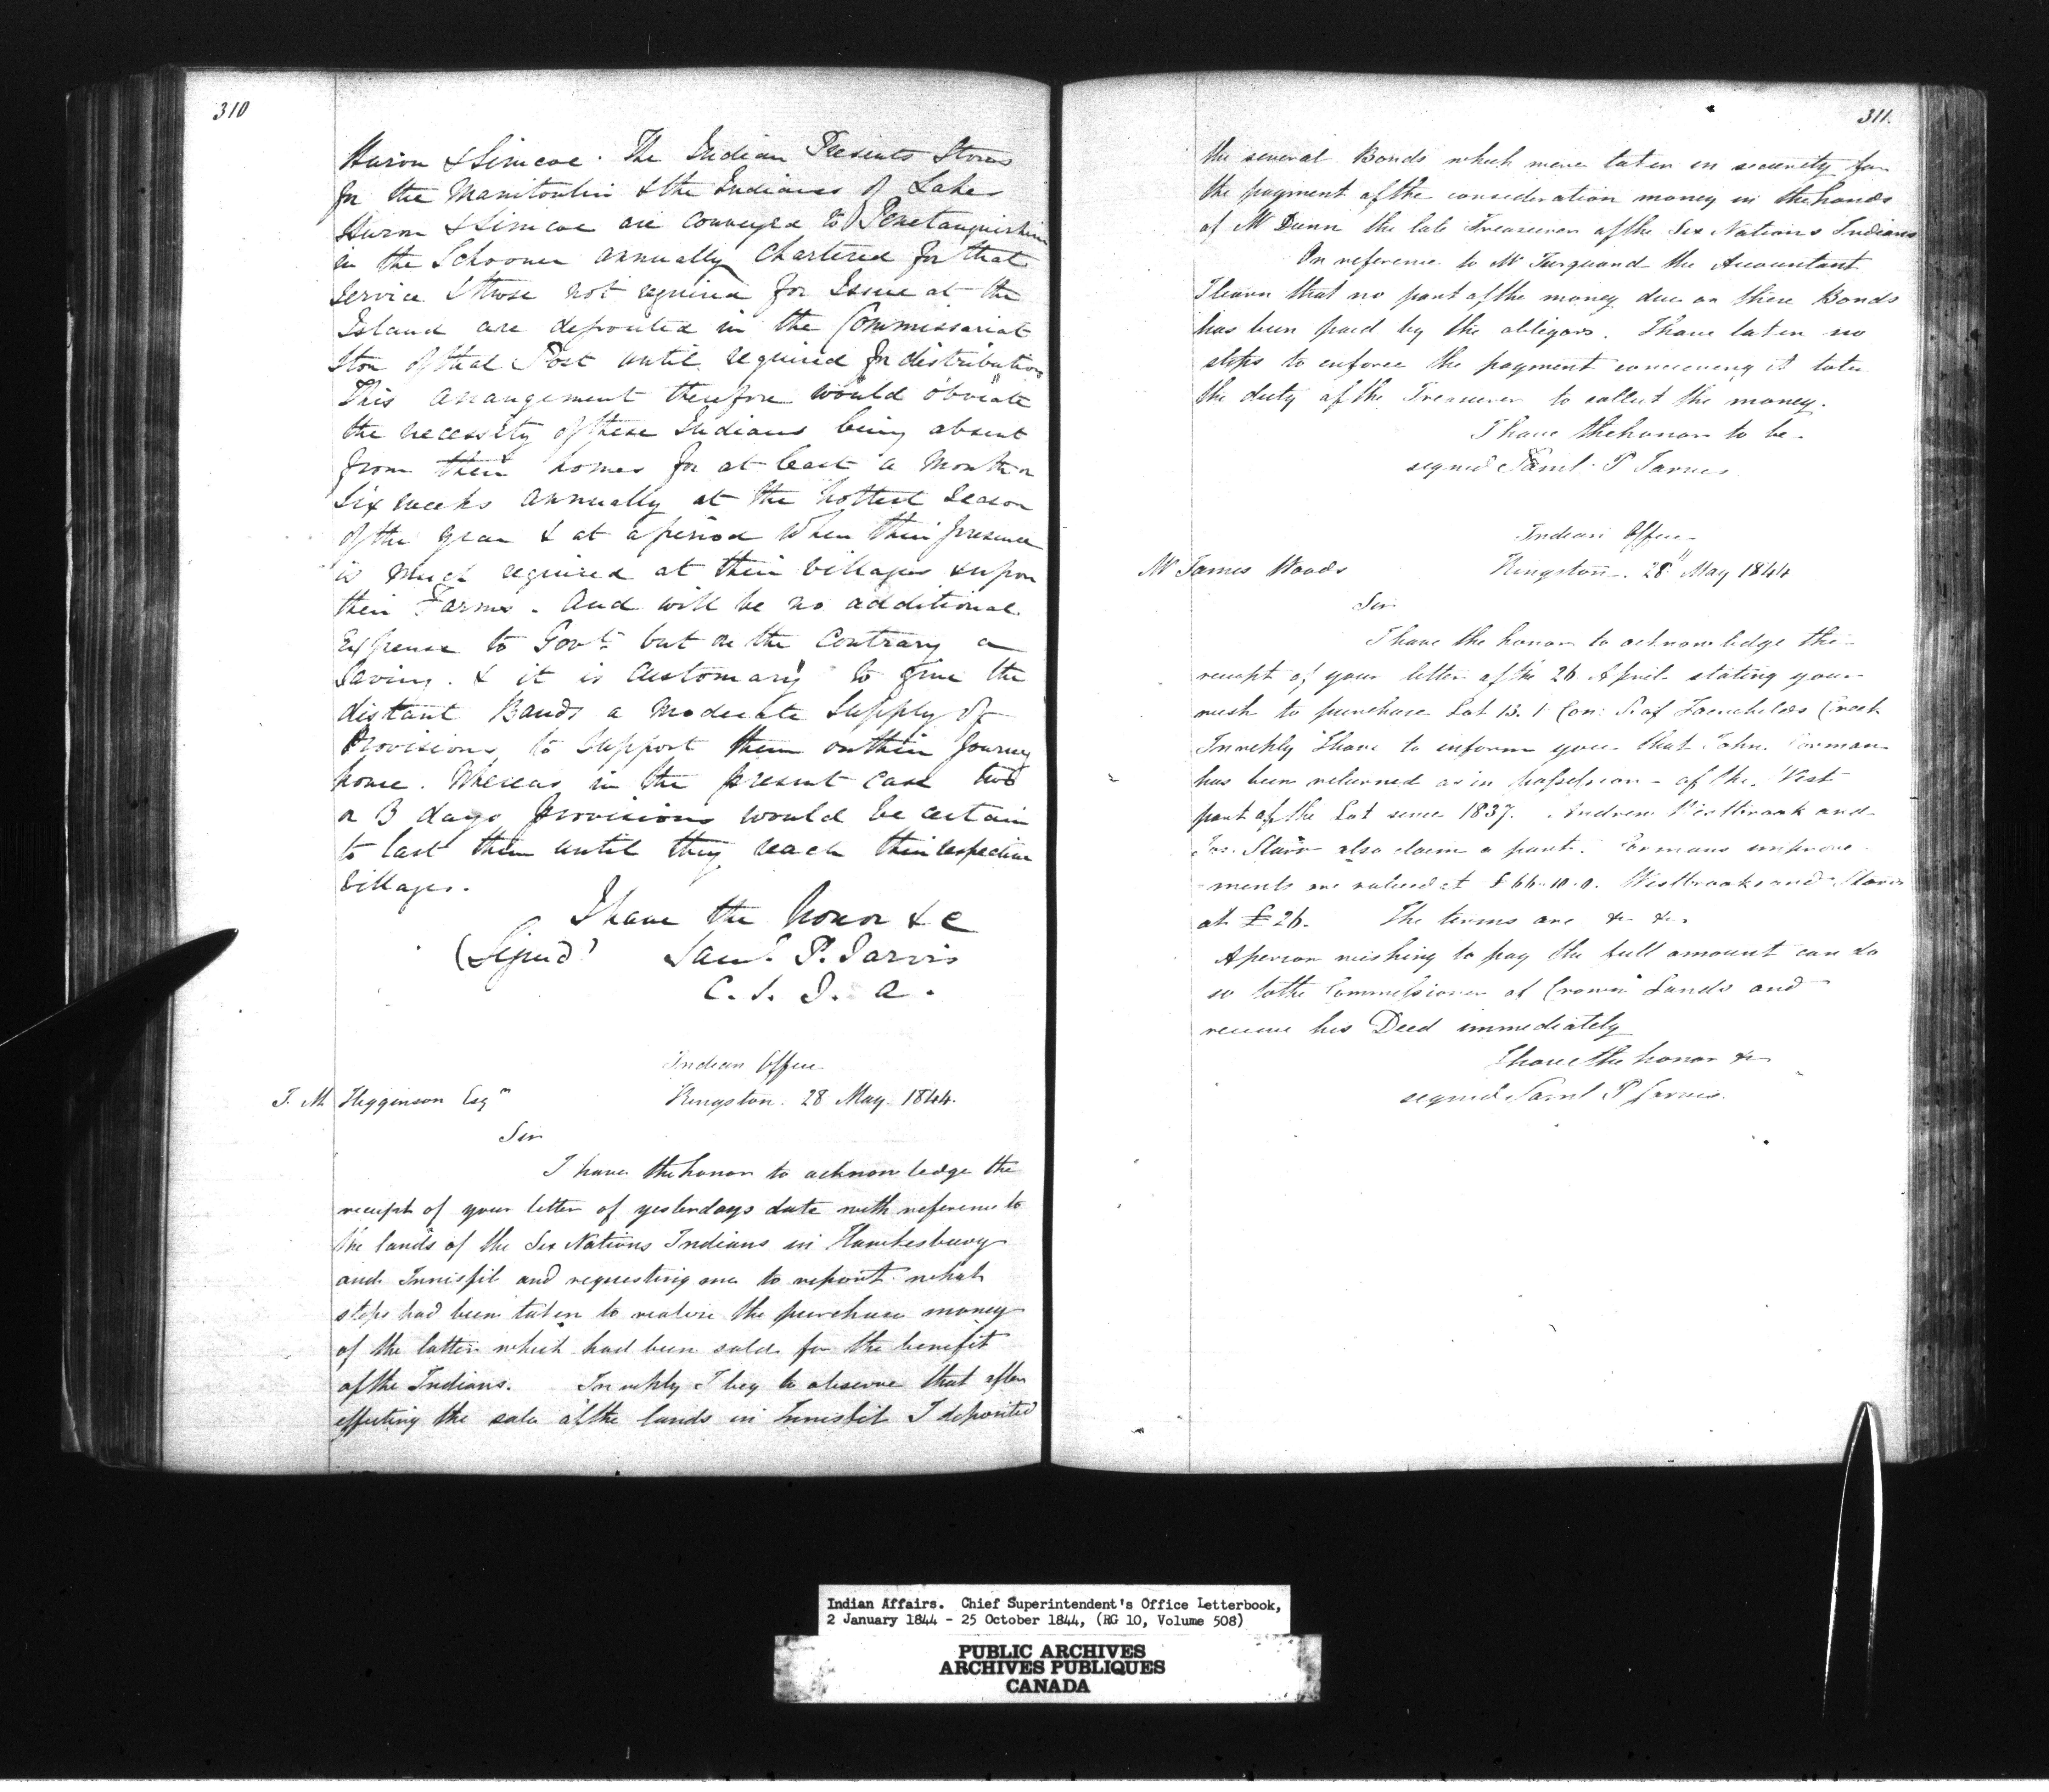 310
Huron & Simcoe. The Indian Presents Stores
for the Manitoulin & the Indians of Lakes
Huron & Simcoe are conveyed to Penetanguishine
in the Schooner annually Chartered for that
Service & those not required for Issue at the
Island are deposited in the Commissariat
Store of that Post until required for distribution
This arrangement therefore would obviate
the necessity of these Indians being absent
from their homes for at least a Month or
Six weeks annually at the hottest Season
of the year & at a period when their presence
is much required at their Villages & upon
their Farms. And will be no additional
Expense to Govt but on the Contrary a
Saving. & it is Customary to give the
distant Bands a Moderate Supply of
Provisions to Support them on their Journey
home. Whereas in the present case two
or 3 days provisions would be certain
to last them until they reach their respective
Villages.
I have the honor & c
(Signed) Saml. P. Jarvis
C. S. I. A.
Indian Office
J. M. Higginson Esqr Kingston. 28 May 1844.
Sir
I have the honor to acknowledge the
receipt of your letter of yesterdays date with reference to
the lands of the Six Nations Indians in Hawkesbury
and Innisfil and requesting me to report what
steps had been taken to realise the purchase money
of the latter which had been sold for the benefit
of the Indians. In reply I beg to observe that after
effecting the sale of the lands in Innisfil I deposited
311.
the several Bonds which were taken in security for
the payment of the consideration money in the hands
of Mr Dunn the late Treasurer of the Six Nations Indians
On reference to Mr Turquand the Accountant
I learn that no part of the money due on these Bonds
has been paid by the obligors. I have taken no
steps to enforce the payment conceiving it to be
the duty of the Treasurer to collect the money.
I have the honor to be.
signed Saml. P Jarvis
Indian Office
Mr James Woods Kingston. 28" May 1844
Sir
I have the honor to acknowledge the
receipt of your letter of the 26 April stating your
wish to purchase Lot 13. 1 Con: S. of Fairchilds Creek
In reply I have to inform you that John Corman
has been returned as in possession of the West
part of the Lot since 1837. Andrew Westbrook and
Jas. Starr also claim a part. Cormans improve
ments are valued at £66.10.0. Westbrooks and Starrs
at £26. The terms are &c &c.
A person wishing to pay the full amount can do
so to the Commissioner of Crown Lands and
receive his Deed immediately
I have the honor &c
signed Saml P Jarvis.
Indian Affairs. Chief Superintendent's Office Letterbook,
2 January 1844 - 25 October 1844, (RG 10, Volume 508)
PUBLIC ARCHIVES
ARCHIVES PUBLIQUES
CANADA